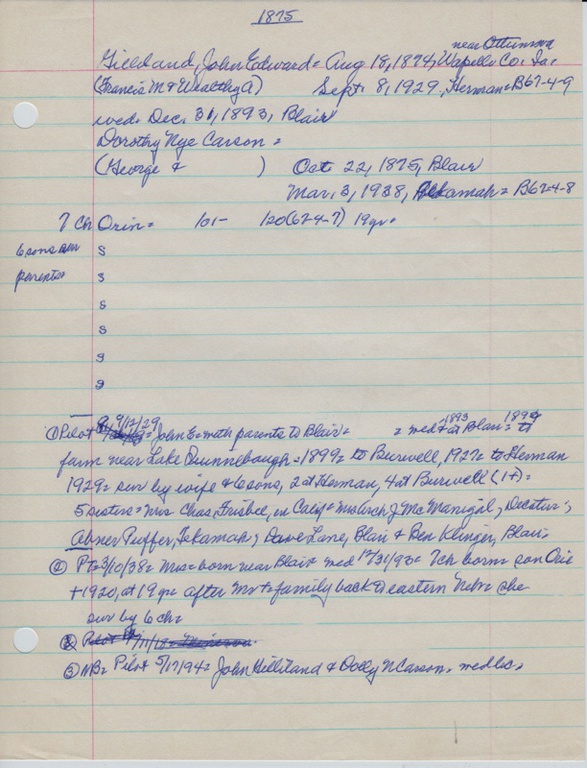 1875
near Ottumwa
Gilliland, John Edward = Aug 18, 1874, Wapello Co. Ia.
(Francis M & Wealthy A) Sept. 8, 1929, Herman = B67-4-9
wed. Dec. 31, 1893, Blair
Dorothy Nye Carson =
(George & ) Oct 22, 1875, Blair
Mar. 3, 1938, Tekamah = B67-4-8
7 Ch Orin = 101- 120(67-4-7) 19yr =
6 sons sur S
parents = S
S
S
S
S
① Pilot 9/12/29 = John E = with parents to Blair = = wed 1893 at Blair = 1894 to
farm near Lake Quinnebaugh = 1899 = to Burwell, 1927 = to Herman
1929 = sur by wife & 6 sons, 2 at Herman, 4 at Burwell (1+) =
5 sisters = Mrs Chas. Frisbee, in Calif = Mrs J McManigal, Decatur,
Abner Puffer, Tekamah, Dave Lane, Blair & Ben Klinger, Blair =
② PT = 3/10/38 = Mrs = born near Blair = wed 12/31/93 = 7ch born = son Orie
+ 1920, at 19yr = after Mr + family back to eastern Nebr = she
sur by 6 ch =
③ NB = Pilot 5/17/94 = John Gilliland & Dolly N Carson = wed lic =